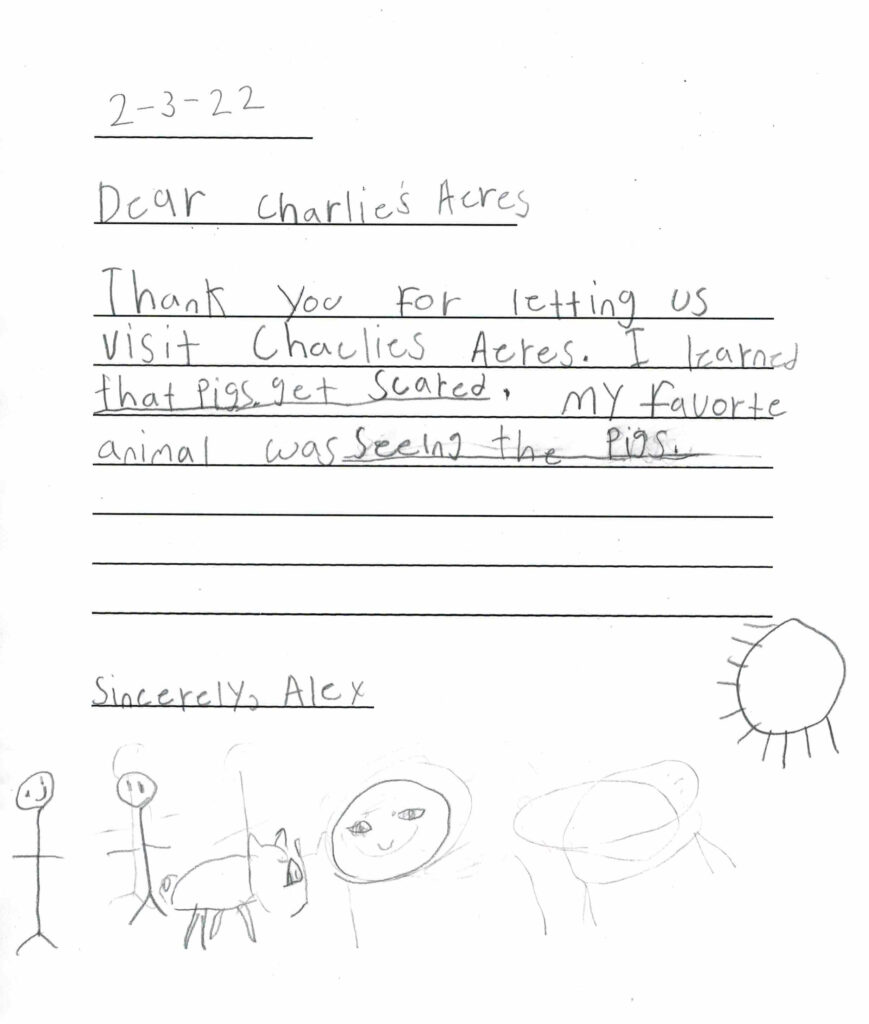 2-3-22
Dear Charlie's Acres
Thank you for letting us
visit Chaclies Acres. I learned
that pigs get scared. My favorte
animal was seeing the pigs.
Sincerely, Alex